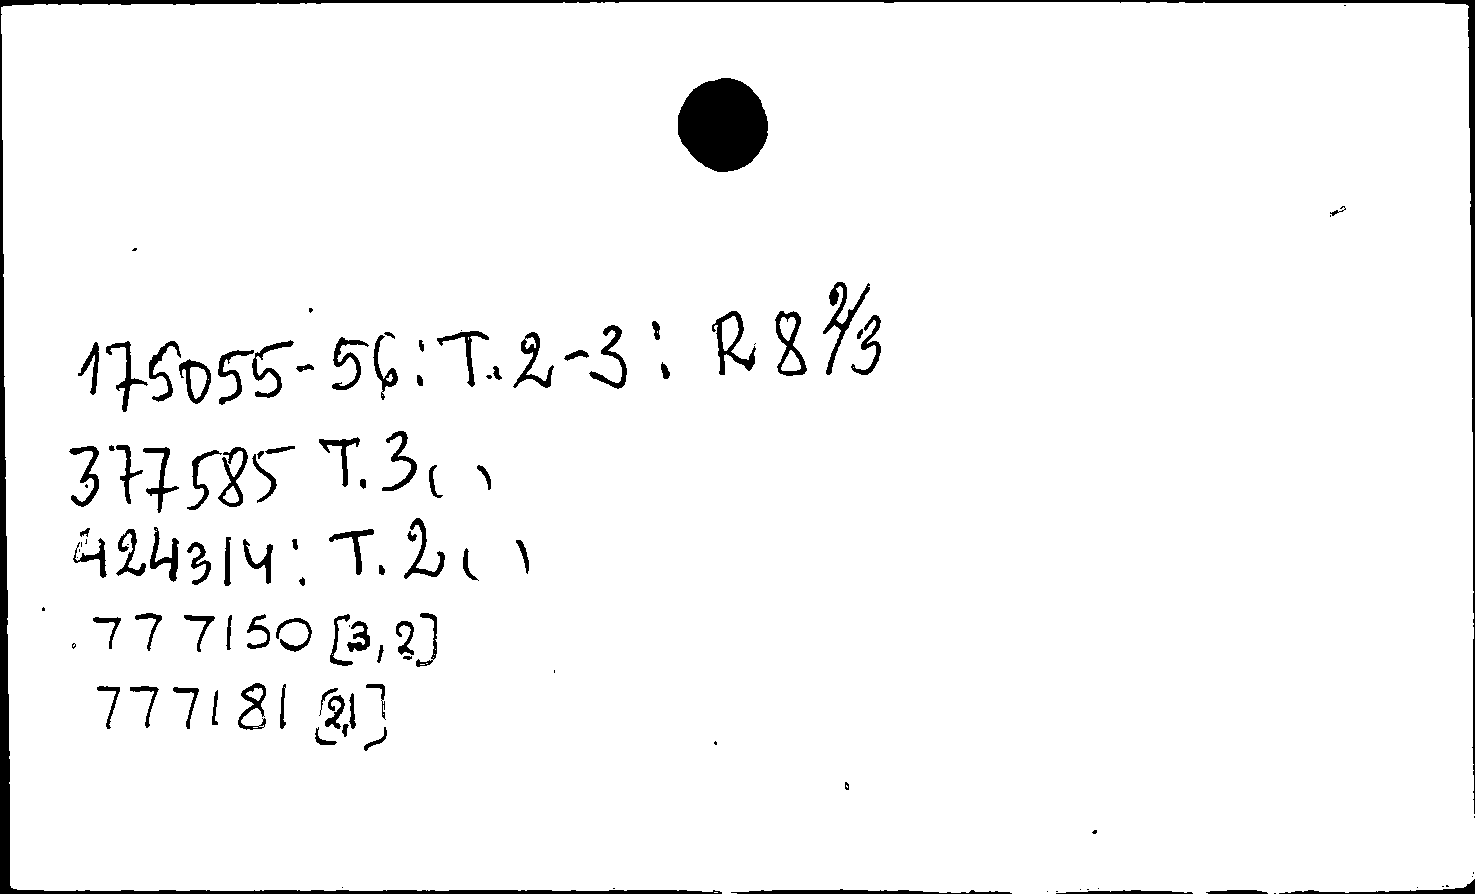 175055-56: T. 2-3: R 8 2/3
377585 T. 3 ( )
424314: T. 2 ( )
777150 [3,2]
777181 [2,1]